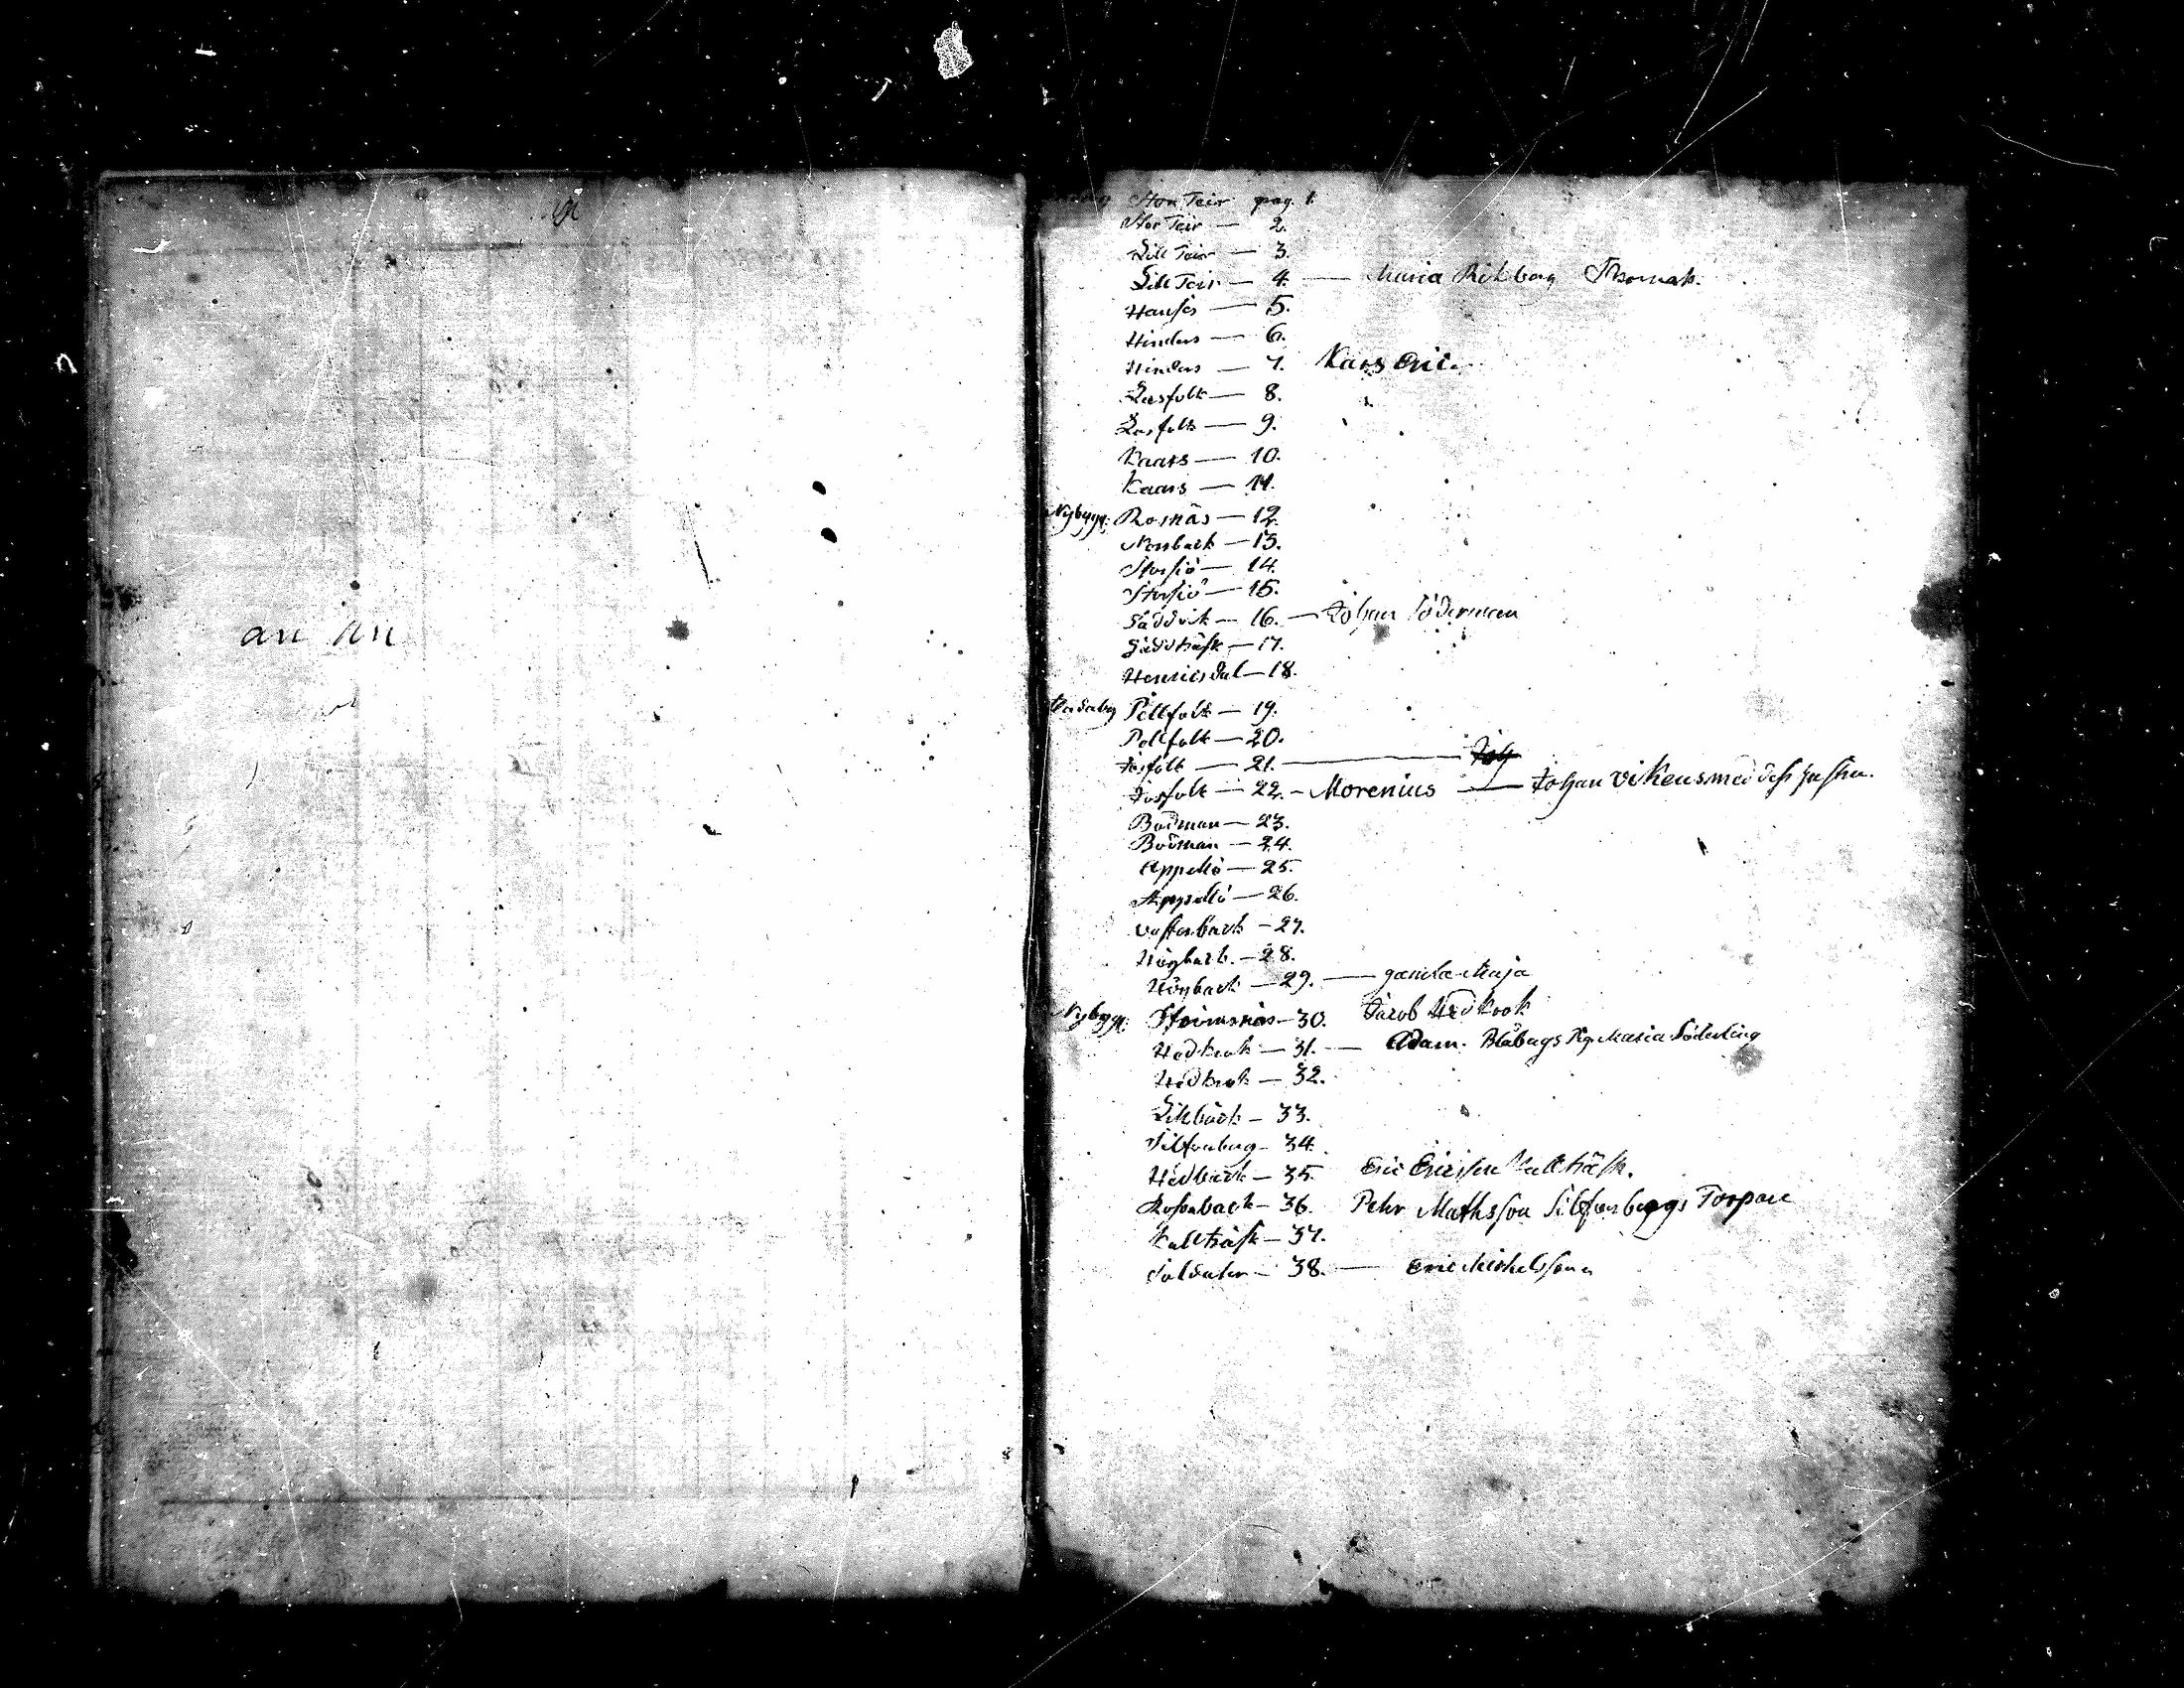 an nn
Stor Teir pag. 1.
Stor Teir — 2.
Lill Teir — 3.
Lill Teir — 4. — Maria Rikberg Thomas.
Hansos — 5.
Hinders — 6.
Hinders — 7. Kars Eric
Lassfolk — 8.
Lassfolk — 9.
Kaars — 10.
Kaars — 11.
Nybygg: Rosnäs — 12.
Norrback — 13.
Storsjö — 14.
Storsjö — 15.
Gäddvik — 16. — Johan Söderman
Gäddträsk — 17.
Henricsdal — 18.
Pellfolk — 19.
Pellfolk — 20.
Josfolk — 21. — Joh
Josfolk — 22. – Morenius — Johan Vikens med dess hustru.
Bodman — 23.
Bodman — 24.
Appellö — 25.
Appellö — 26.
Westerback — 27.
Högback. — 28.
Högback — 29. — gamla Maja
Nybygg: Streimsnäs — 30. Jacob Hedkrok
Hedkrok — 31. — Adam. Blåbergs Pig. Maria Söderling
Hedkrok — 32.
Lillback — 33.
Silfverberg — 34.
Hedback — 35. Eric Ericsson Kallträsk.
Rosenback — 36. Pehr Mathsson Silfverbergs Torpare
Kallträsk — 37.
Soldater — 38. — Eric Michelsson